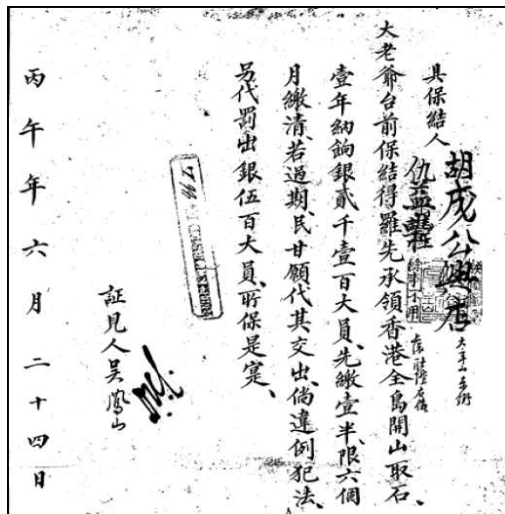 具保結人
胡成公興店
仇益
大老爺台前保結得羅先承領香港全島開山取石、
壹年納餉銀貳千壹百大員、先繳壹半、限六個
月繳清、若過期、民甘願代其交出、倘違例犯法、
另代罰出銀伍百大員、所保是寔、
証見人吳鳳山
丙午年六月二十四日